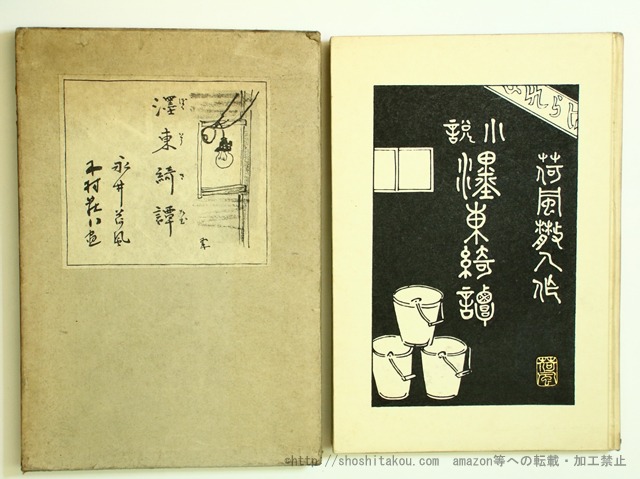 濹東綺譚
ぼくとうきだん
永井荷風
木村荘八画
荷風散人作
小説
濹東綺譚
荷風
http://shoshitakou.com amazon等への転載・加工禁止